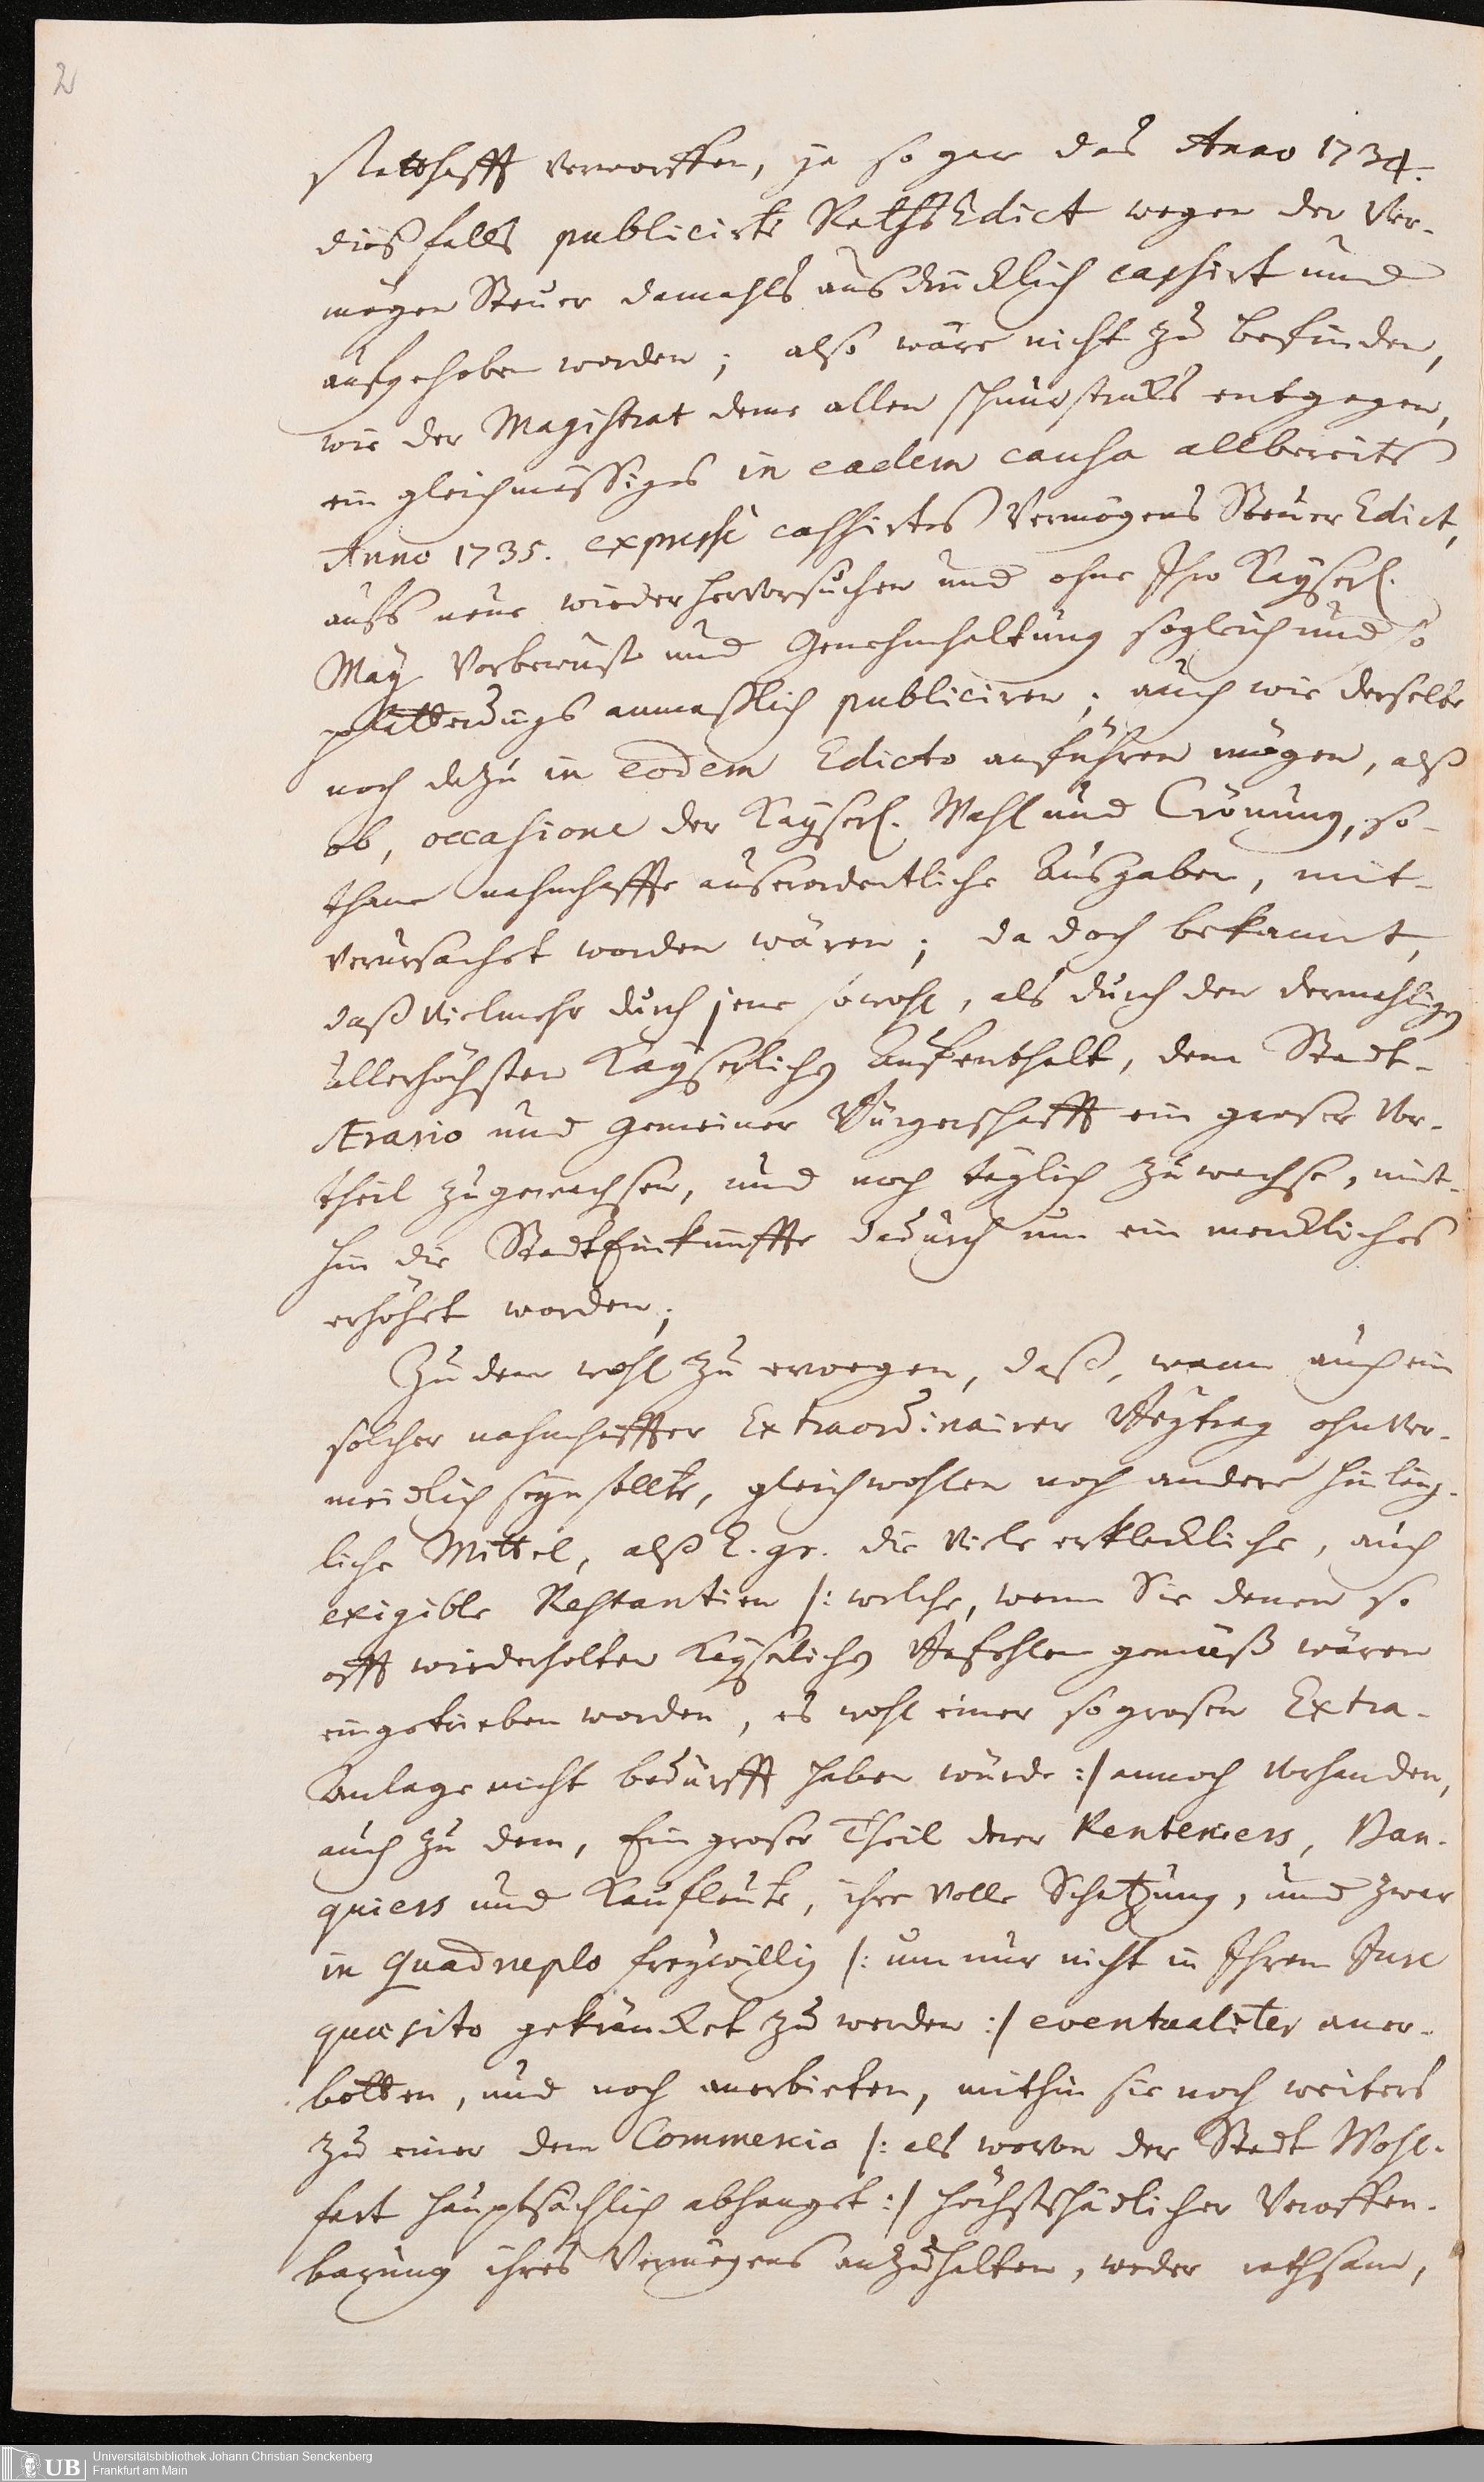 2
statthafft verworffen, ja so gar das Anno 1734.
dießfalls publicirte RathsEdict wegen der Ver-
mögen Steuer damahls ausdrücklich cassirt und
aufgehoben worden; also wäre nicht zu befinden,
wie der Magistrat deme allen schnurstracks entgegen,
ein gleichmässiges in eadem causa allbereits
Anno 1735. expresse cassirtes Vermögens Steuer Edict,
aufs neue wieder hervorsuchen und ohne Ihro Kayserl.
May. Vorbewust und Genehmhaltung sogleich und so
platterdings anmaßlich publiciren; auch wie derselbe
noch dazu in eodem Edicto anführen mögen, alß
ob, occasione der Kayserl. Wahl und Crönung, so-
thane nahmhaffte auserordentliche Ausgaben, mit-
verursachet worden wären; da doch bekannt,
daß vielmehr durch jene sowohl, als durch den dermahligen
Allerhöchsten Kayserlichen Auffenthalt, dem Stadt-
Ærario und gemeiner Bürgerschafft ein groser Vor-
theil zugewachsen, und noch täglich zuwachse, mit-
hin die StadtEinkünffte dadurch um ein merckliches
erhöhet worden;
Zudem wohl zu erwegen, daß, wann auch ein
solcher nahmhaffter Extraordinairer Beytrag ohnver-
meidlich seyn sollte, gleichwohlen noch andere hinläng-
liche Mittel, alß E. gr. die viele erkleckliche, auch
exigible Restantien /: welche, wenn Sie denen so
offt wiederholten Kayserlichen Befehlen gemäß wären
eingetrieben worden, es wohl einer so grosen Extra-
Anlage nicht bedürfft haben würde :/ annoch vorhanden,
auch zu dem, Ein groser Theil derer Renteniers, Ban-
quiers und Kaufleute, ihre volle Schatzung, und zwar
in quadruplo freywillig /: um nur nicht in Ihrem Jure
quaesito gekräncket zu werden :/ eventualiter aner-
botten, und noch anerbieten, mithin sie noch weiters
zu einer dem Commercio /: als wovon der Stadt Wohl-
fart hauptsächlich abhanget :/ höchstschädlicher Veroffen-
bahrung ihres Vermögens anzuhalten, weder rathsam,
UB
Universitätsbibliothek Johann Christian Senckenberg
Frankfurt am Main